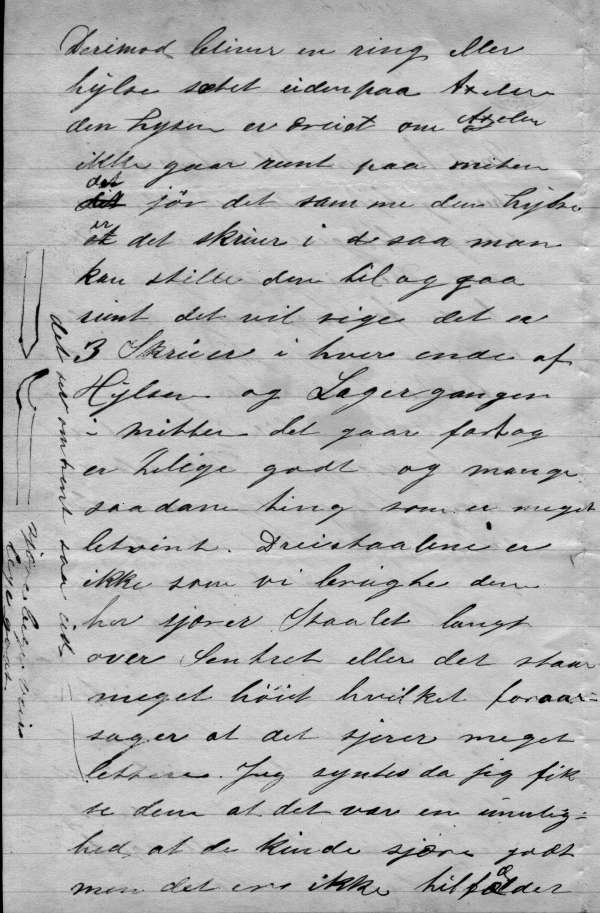 Derimod bliver en ring eller
hylse sætet udenpaa Axelen
den hylsen er dreiet om Axelen
ikke gaar runt paa miten
det jør det samme den hylse
er det skruer i saa man
kan stille den til og gaa
runt det vil sige det er
3 Skruer i hver ende af
Hylsen og Lagergangen
i mitten det gaar fort og
er lilige godt og mange
saadane ting som er meget
letvint. Dreistaalene er
ikke som vi brugte dem
her sjærer Staalet langt
over Sentret eller det staar
meget höiet hvilket foraar-
sager at det sjærer meget
lettere. Jeg syntes da jeg fik
se dem at det var en umulig-
hed at de kunde sjære godt
men det er ikke tilfældet
det ser omtrent saa ud